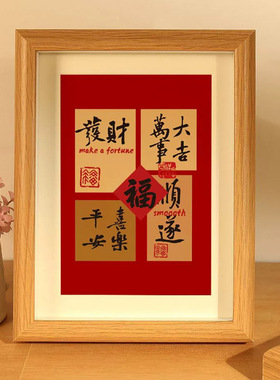 發財
make a fortune
萬事
大吉
福
順遂
smooth
平安
喜樂